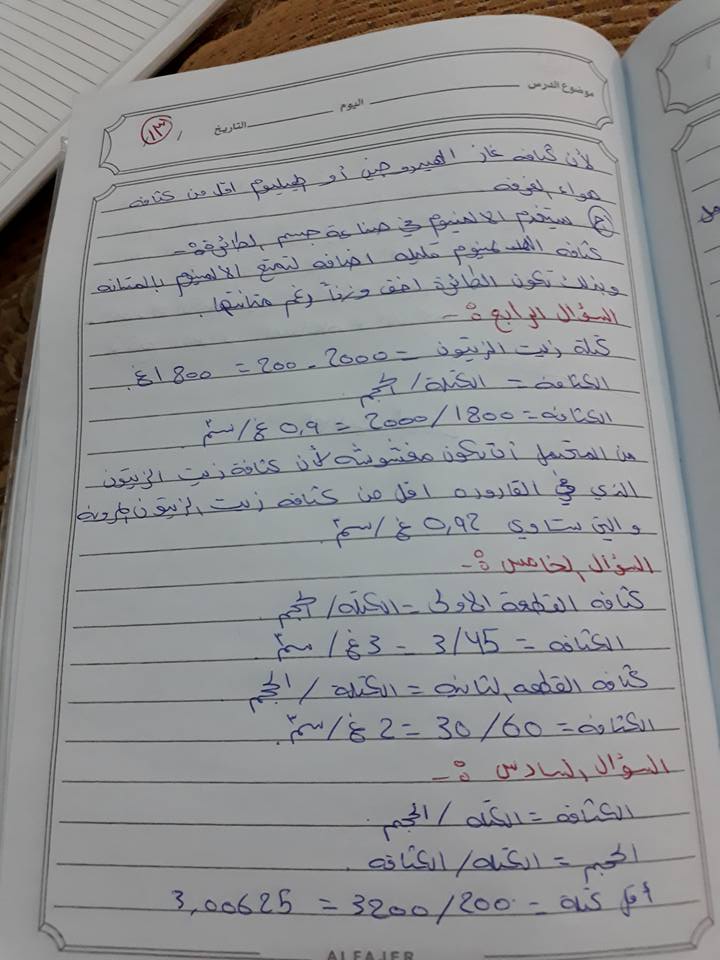 موضوع الدرس اليوم التاريخ / ١٣
لأن كثافة غاز الهيدروجين أو الهيليوم اقل من كثافة
هواء الغرفة
ع) يستخدم الالمنيوم في صناعة جسم الطائرة :-
كثافة الالمنيوم قليلة اضافة لتمتع الالمنيوم بالمتانه
وبذلك تكون الطائرة اخف وزناً رغم متانتها.
السؤال الرابع :-
كتلة زيت الزيتون = 2000 - 200 = 1800غ.
الكثافة = الكتلة/الحجم
الكثافة = 2000/1800 = 0,9 غ/سم٣
من المحتمل أن تكون مغشوشه لأن كثافة زيت الزيتون
الذي في القاروره اقل من كثافه زيت الزيتون المعروفة
والتي تساوي 0,92 غ/سم٣
السؤال الخامس :-
كثافة القطعة الاولى = الكتله/الحجم
الكثافه = 3/45 = 3غ/سم٣
كثافه القطعه الثانيه = الكتله/الحجم
الكثافه = 30/60 = 2غ/سم٣
السؤال السادس :-
الكثافه = الكتله/الحجم
الحجم = الكتله/الكثافه
كتله = 3200/200 = 3,00625
ALFAJER